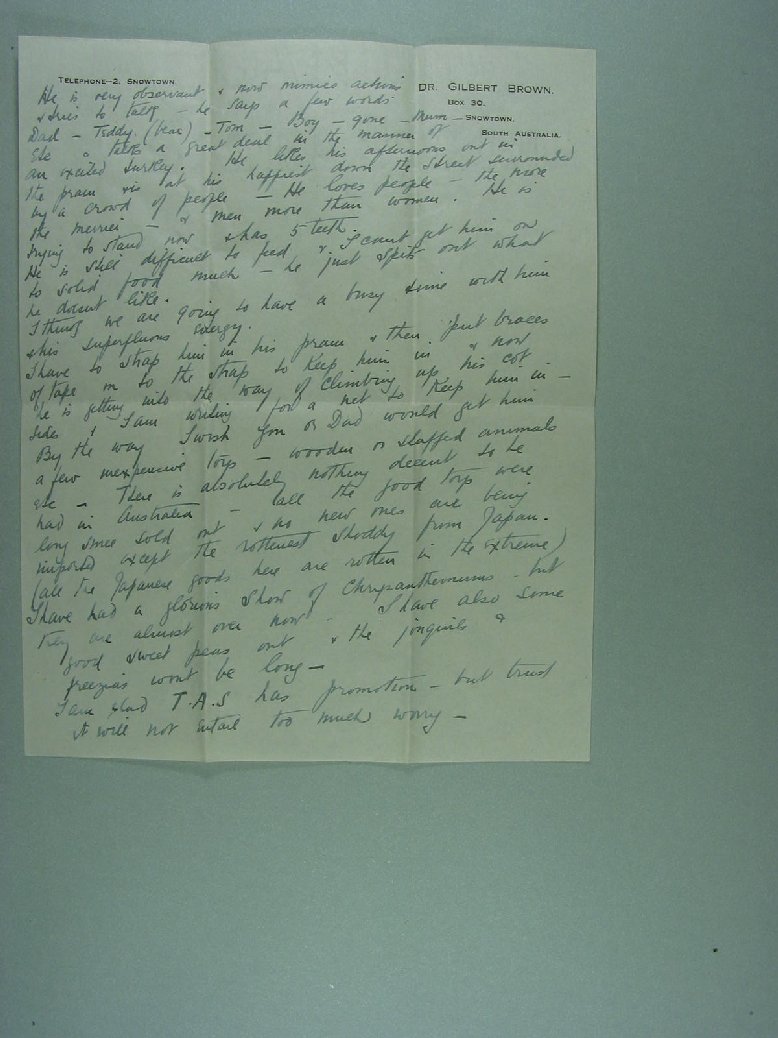 TELEPHONE—2, SNOWTOWN.
DR. GILBERT BROWN.
BOX 30.
SNOWTOWN.
SOUTH AUSTRALIA.
He is very observant & now mimics actions
& tries to talk – he says a few words
Dad – Teddy (bear) – Tom – Boy – gone – Mum –
Etc & talks a great deal in the manner of
an excited turkey. He likes his afternoons out in
the pram & is at his happiest down the street surrounded
by a crowd of people – He loves people – the more
the merrier – & men more than women. He is
trying to stand now & has 5 teeth.
He is still difficult to feed & I cant get him on
to solid food much – he just spits out what
he doesnt like.
I think we are going to have a busy time with him
& his superfluous energy.
I have to strap him in his pram & then put braces
of tape on to the strap to keep him in & now
he is getting into the way of climbing up his cot
sides & I am writing for a net to keep him in –
By the way I wish you or Dad would get him
a few inexpensive toys – wooden or stuffed animals
etc – There is absolutely nothing decent to be
had in Australia – all the good toys were
long since sold out & no new ones are being
imported except the rottenest shoddy from Japan.
(all the Japanese goods here are rotten in the extreme)
I have had a glorious show of Chrysanthemums – but
they are almost over now. I have also some
good sweet peas out & the jonquils &
freezias wont be long –
I am glad T.A.S has promotion – but trust
it will not entail too much worry –